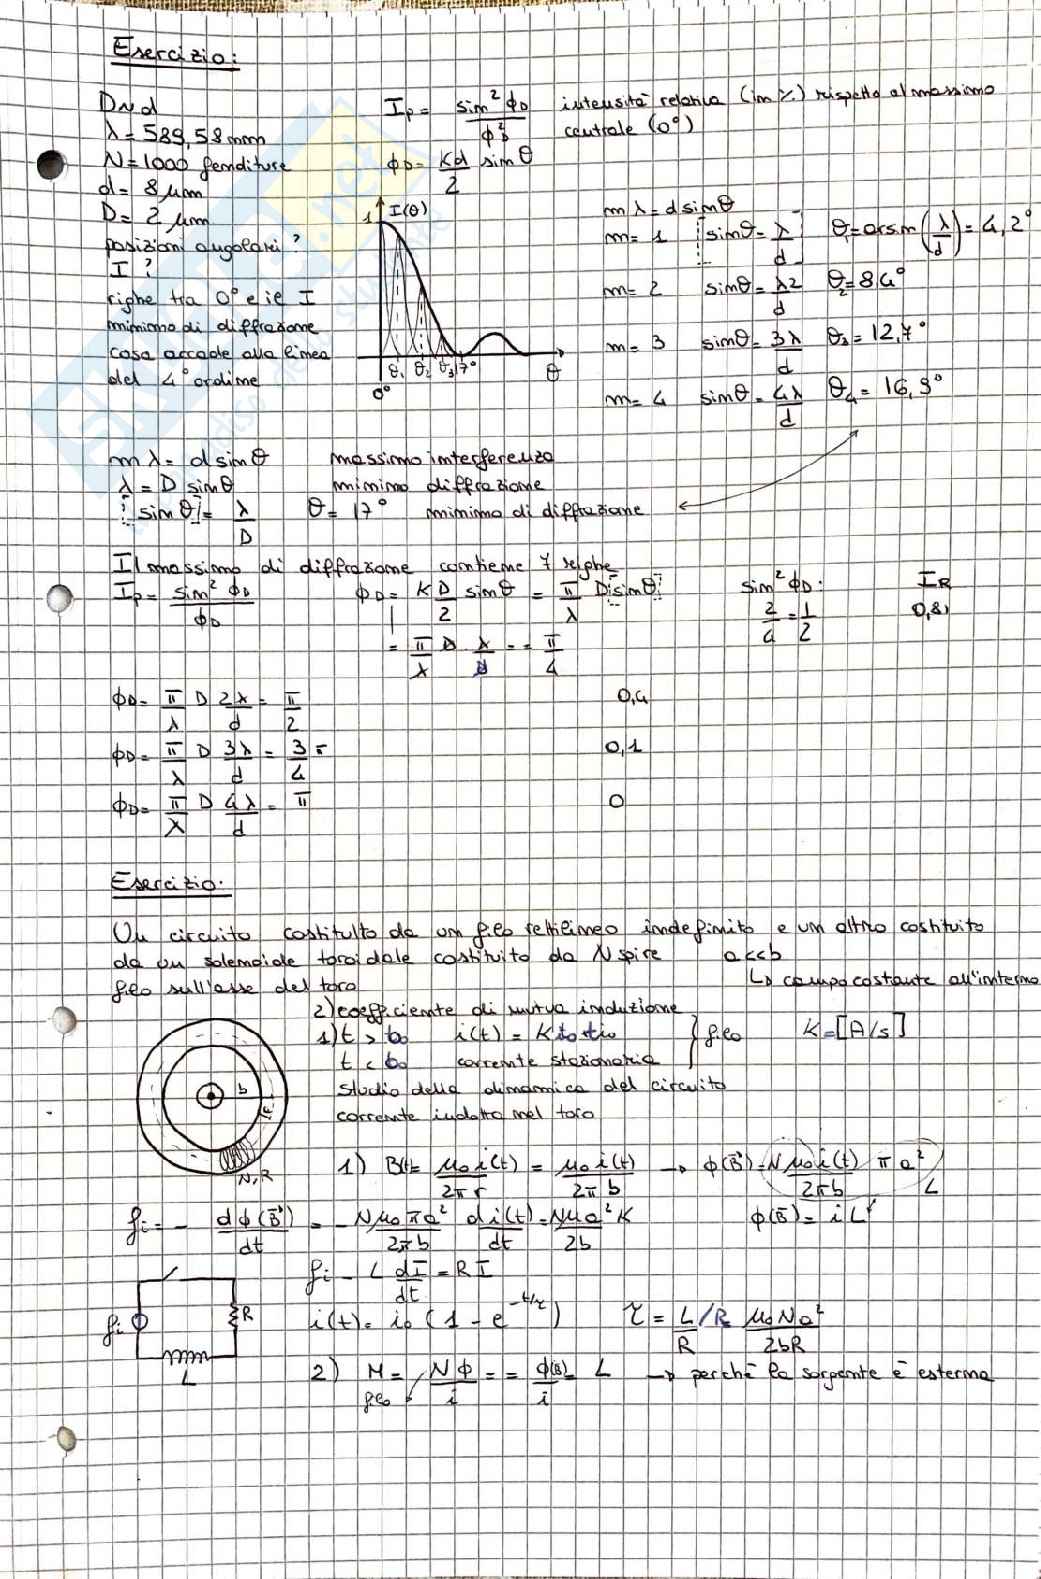 Esercizio:
D N d
λ = 589,58 nm
N = 1000 fenditure
d = 8 μm
D = 2 μm
posizioni angolari?
I?
righe tra 0° e il I
minimo di diffrazione
cosa accade alla linea
del 4° ordine
Ip = sin² φD / φ²D intensità relativa (in %) rispetto al massimo
centrale (0°)
φD = Kd/2 sin θ
1 I(θ)
0° θ₁ θ₂ θ₃ 17° θ
mλ = d sin θ
m = 1 sin θ = λ/d θ₁ = arsin (λ/d) = 4,2°
m = 2 sin θ = λ2/d θ₂ = 8,4°
m = 3 sin θ = 3λ/d θ₃ = 12,7°
m = 4 sin θ = 4λ/d θ₄ = 16,9°
mλ = d sin θ massimo interferenza
λ = D sin θ minimo diffrazione
sin θ = λ/D θ = 17° minimo di diffrazione
Il massimo di diffrazione contiene 7 righe
Ip = sin² φD / φD φD = K D/2 sin θ = π/λ D sin θ sin² φD: IR
2/4 = 1/2 0,81
= π/λ D λ/d = = π/4
φD = π/λ D 2λ/d = π/2 0,4
φD = π/λ D 3λ/d = 3/4 π 0,1
φD = π/λ D 4λ/d = π 0
Esercizio:
Un circuito costituito da un filo rettilineo indefinito e un altro costituito
da un solenoide toroidale costituito da N spire a<<b
filo sull'asse del toro ↳ campo costante all'interno
2) coefficiente di mutua induzione
1) t > t₀ i(t) = Kt
t < t₀ corrente stazionaria } filo K = [A/s]
studio della dinamica del circuito
corrente indotta nel toro
b
N, R
1) B(t) = μ₀ i(t) / 2πr = μ₀ i(t) / 2πb → φ(B⃗) = N μ₀ i(t) / 2πb π a²
L
fi = - dφ(B⃗)/dt = - N μ₀ π a² / 2πb di(t)/dt = N μ a² K / 2b φ(B⃗) = i L
fi - L dI/dt = R I
fi R L
i(t) = i₀ (1 - e^(-t/τ)) τ = L/R / R μ₀ N a² / 2bR
2) M = Nφ/i = = φ(B)/i = L → perché la sorgente è esterna
filo